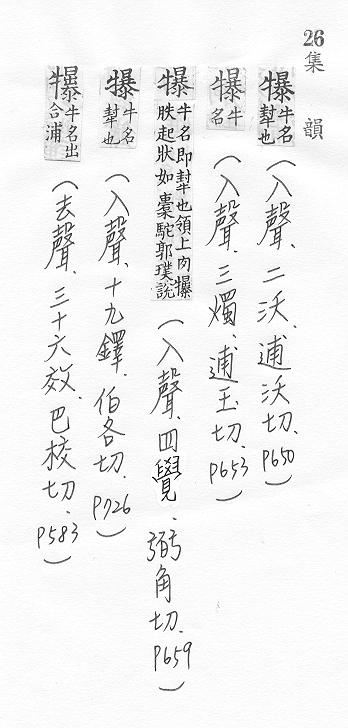 26 集韻
犦牛名犎也(入聲、二沃、逋沃切、P650)
犦牛名(入聲、三燭、逋玉切、P653)
犦牛名即犎也領上肉犦胅起狀如橐駝郭璞說(入聲、四覺、弼角切、P659)
犦牛名犎也(入聲、十九鐸、伯各切、P726)
犦牛名出合浦(去聲、三十六效、巴校切、P583)